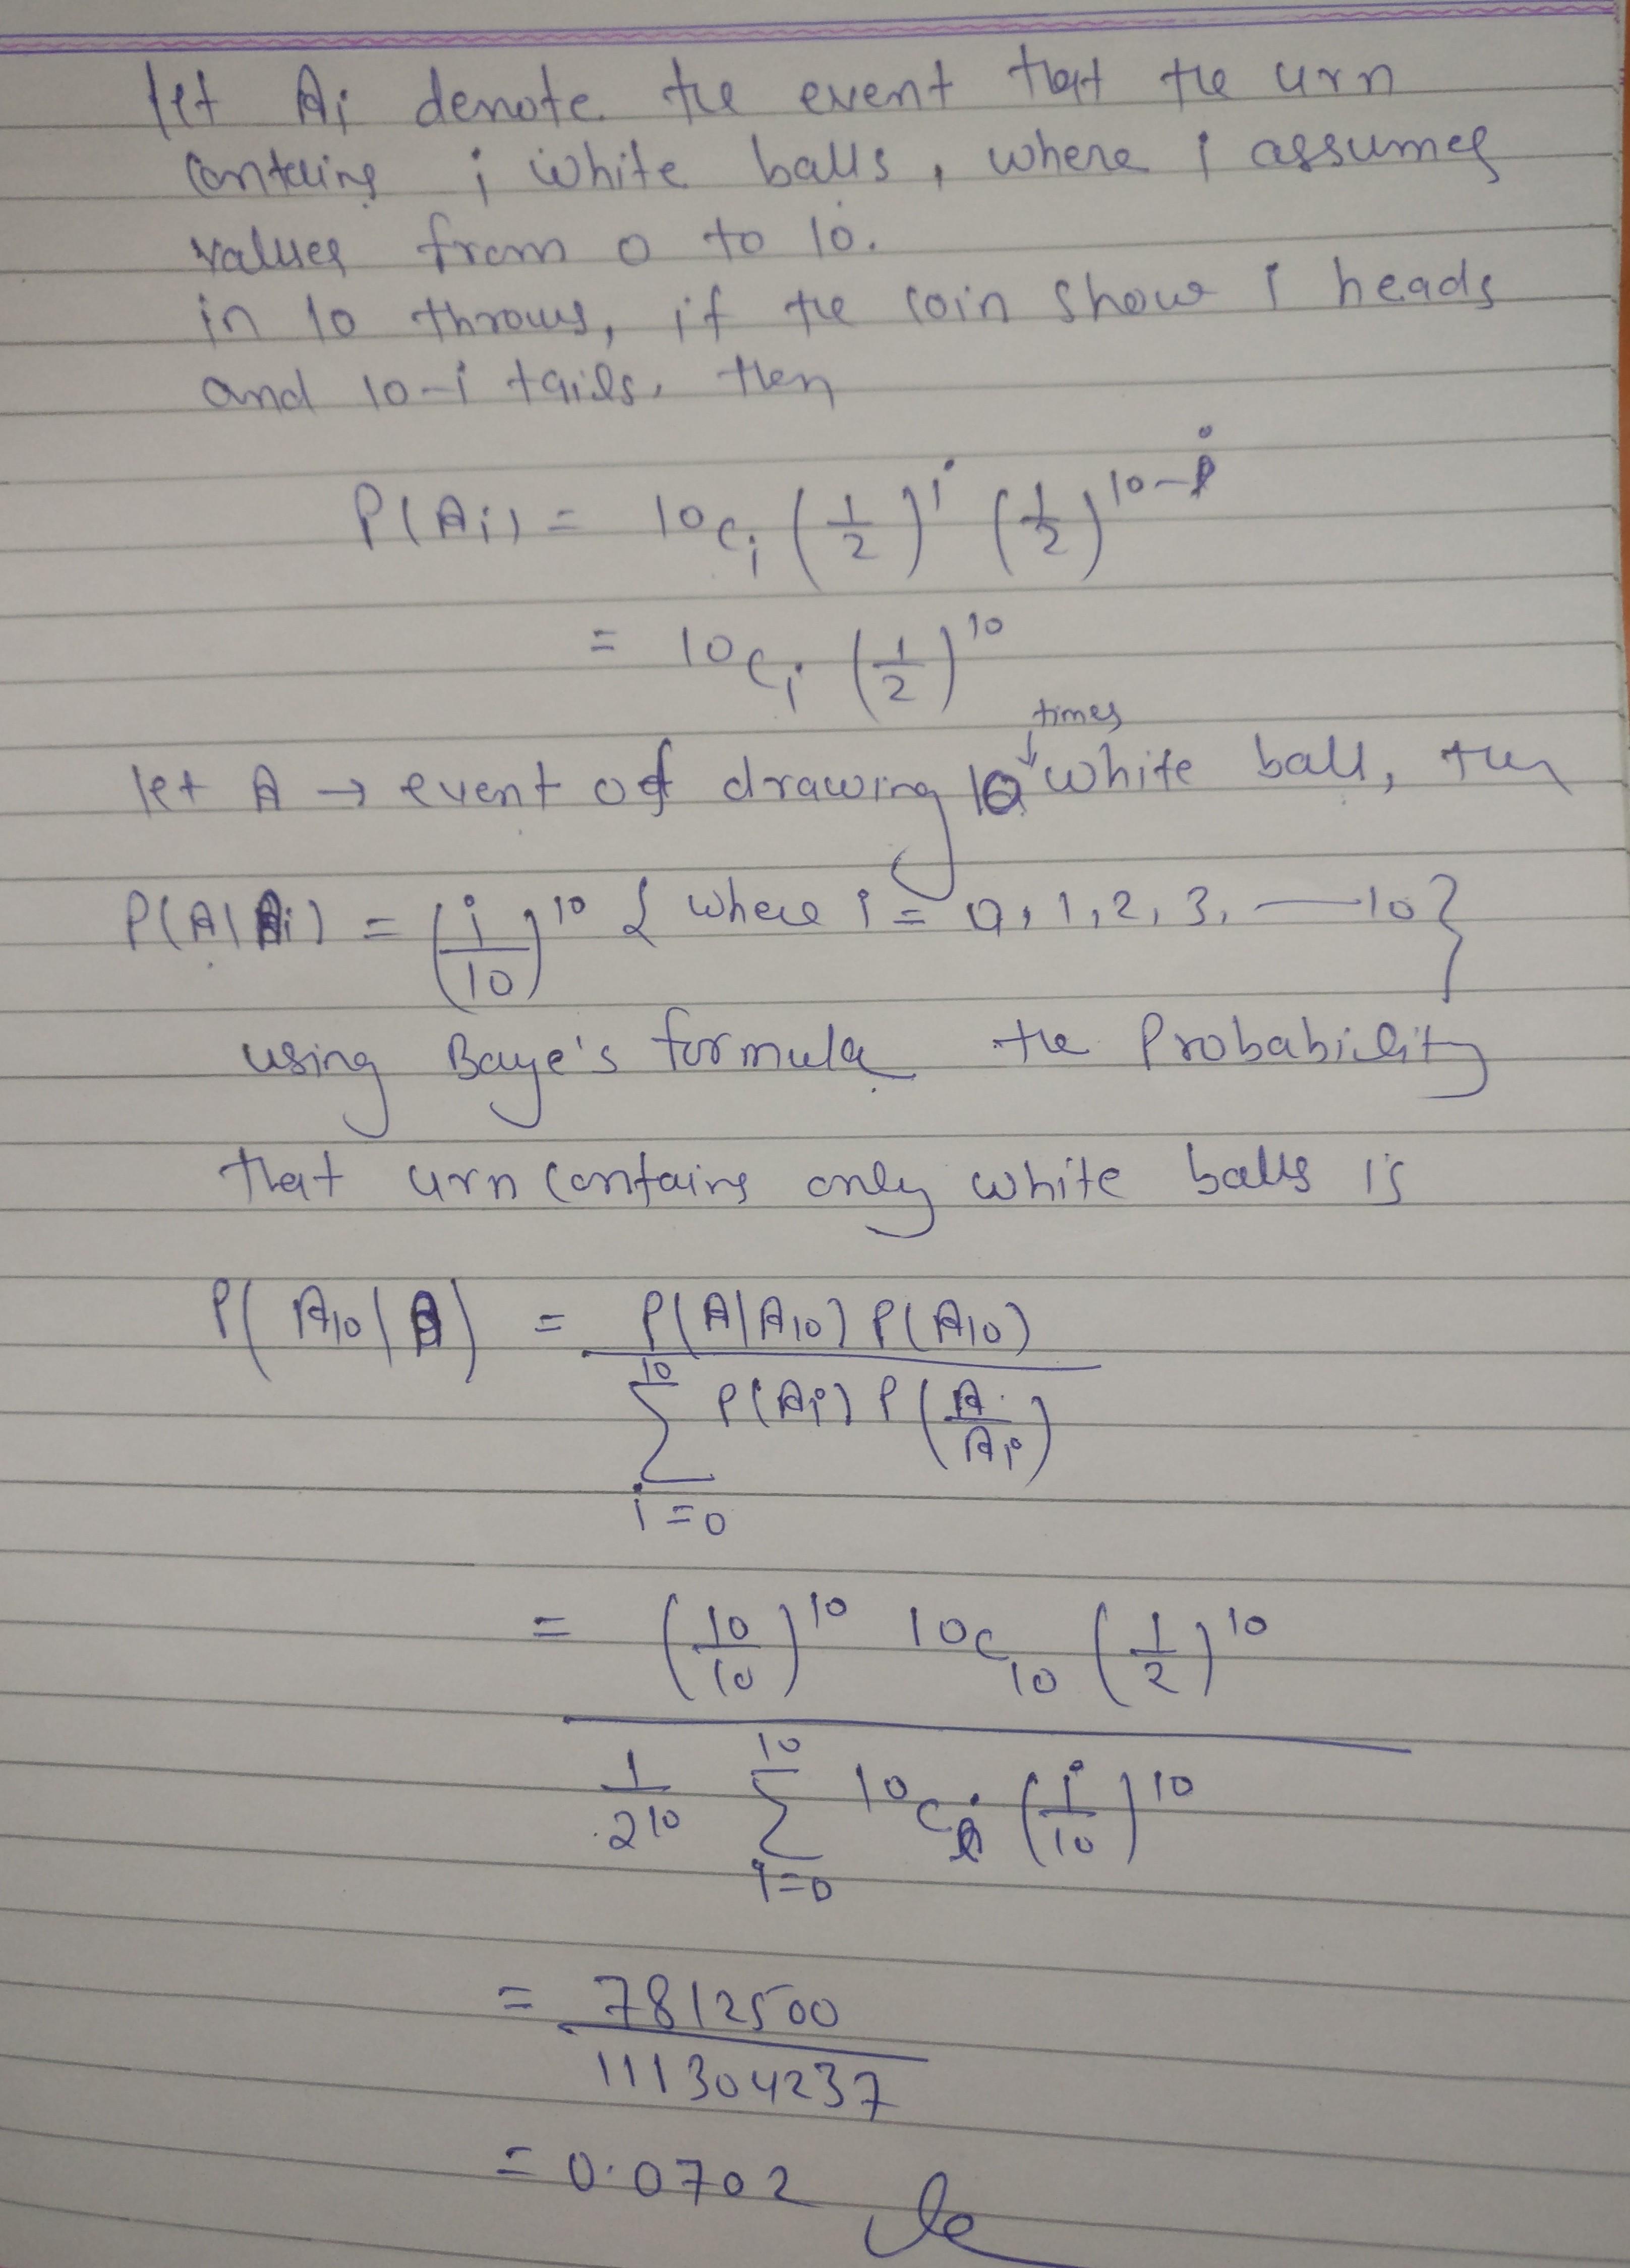 let Ai denote the event that the urn
contains i white balls, where i assumes
values from 0 to 10.
in 10 throws, if the coin show i heads
and 10-i tails, then
P(Ai) = 10Ci (1/2)^i (1/2)^10-i
= 10Ci (1/2)^10
times
let A → event of drawing 10 ↓ white ball, then
P(A|Ai) = (i/10)^10 { where i = 0, 1, 2, 3, — 10 }
using Baye's formula the Probability
that urn contains only white balls is
P(A10|A) = P(A|A10) P(A10)
10 Σ i=0 P(Ai) P(A/Ai)
= (10/10)^10 10C10 (1/2)^10
1/2^10 10 Σ i=0 10Ci (i/10)^10
= 7812500
111304237
= 0.0702